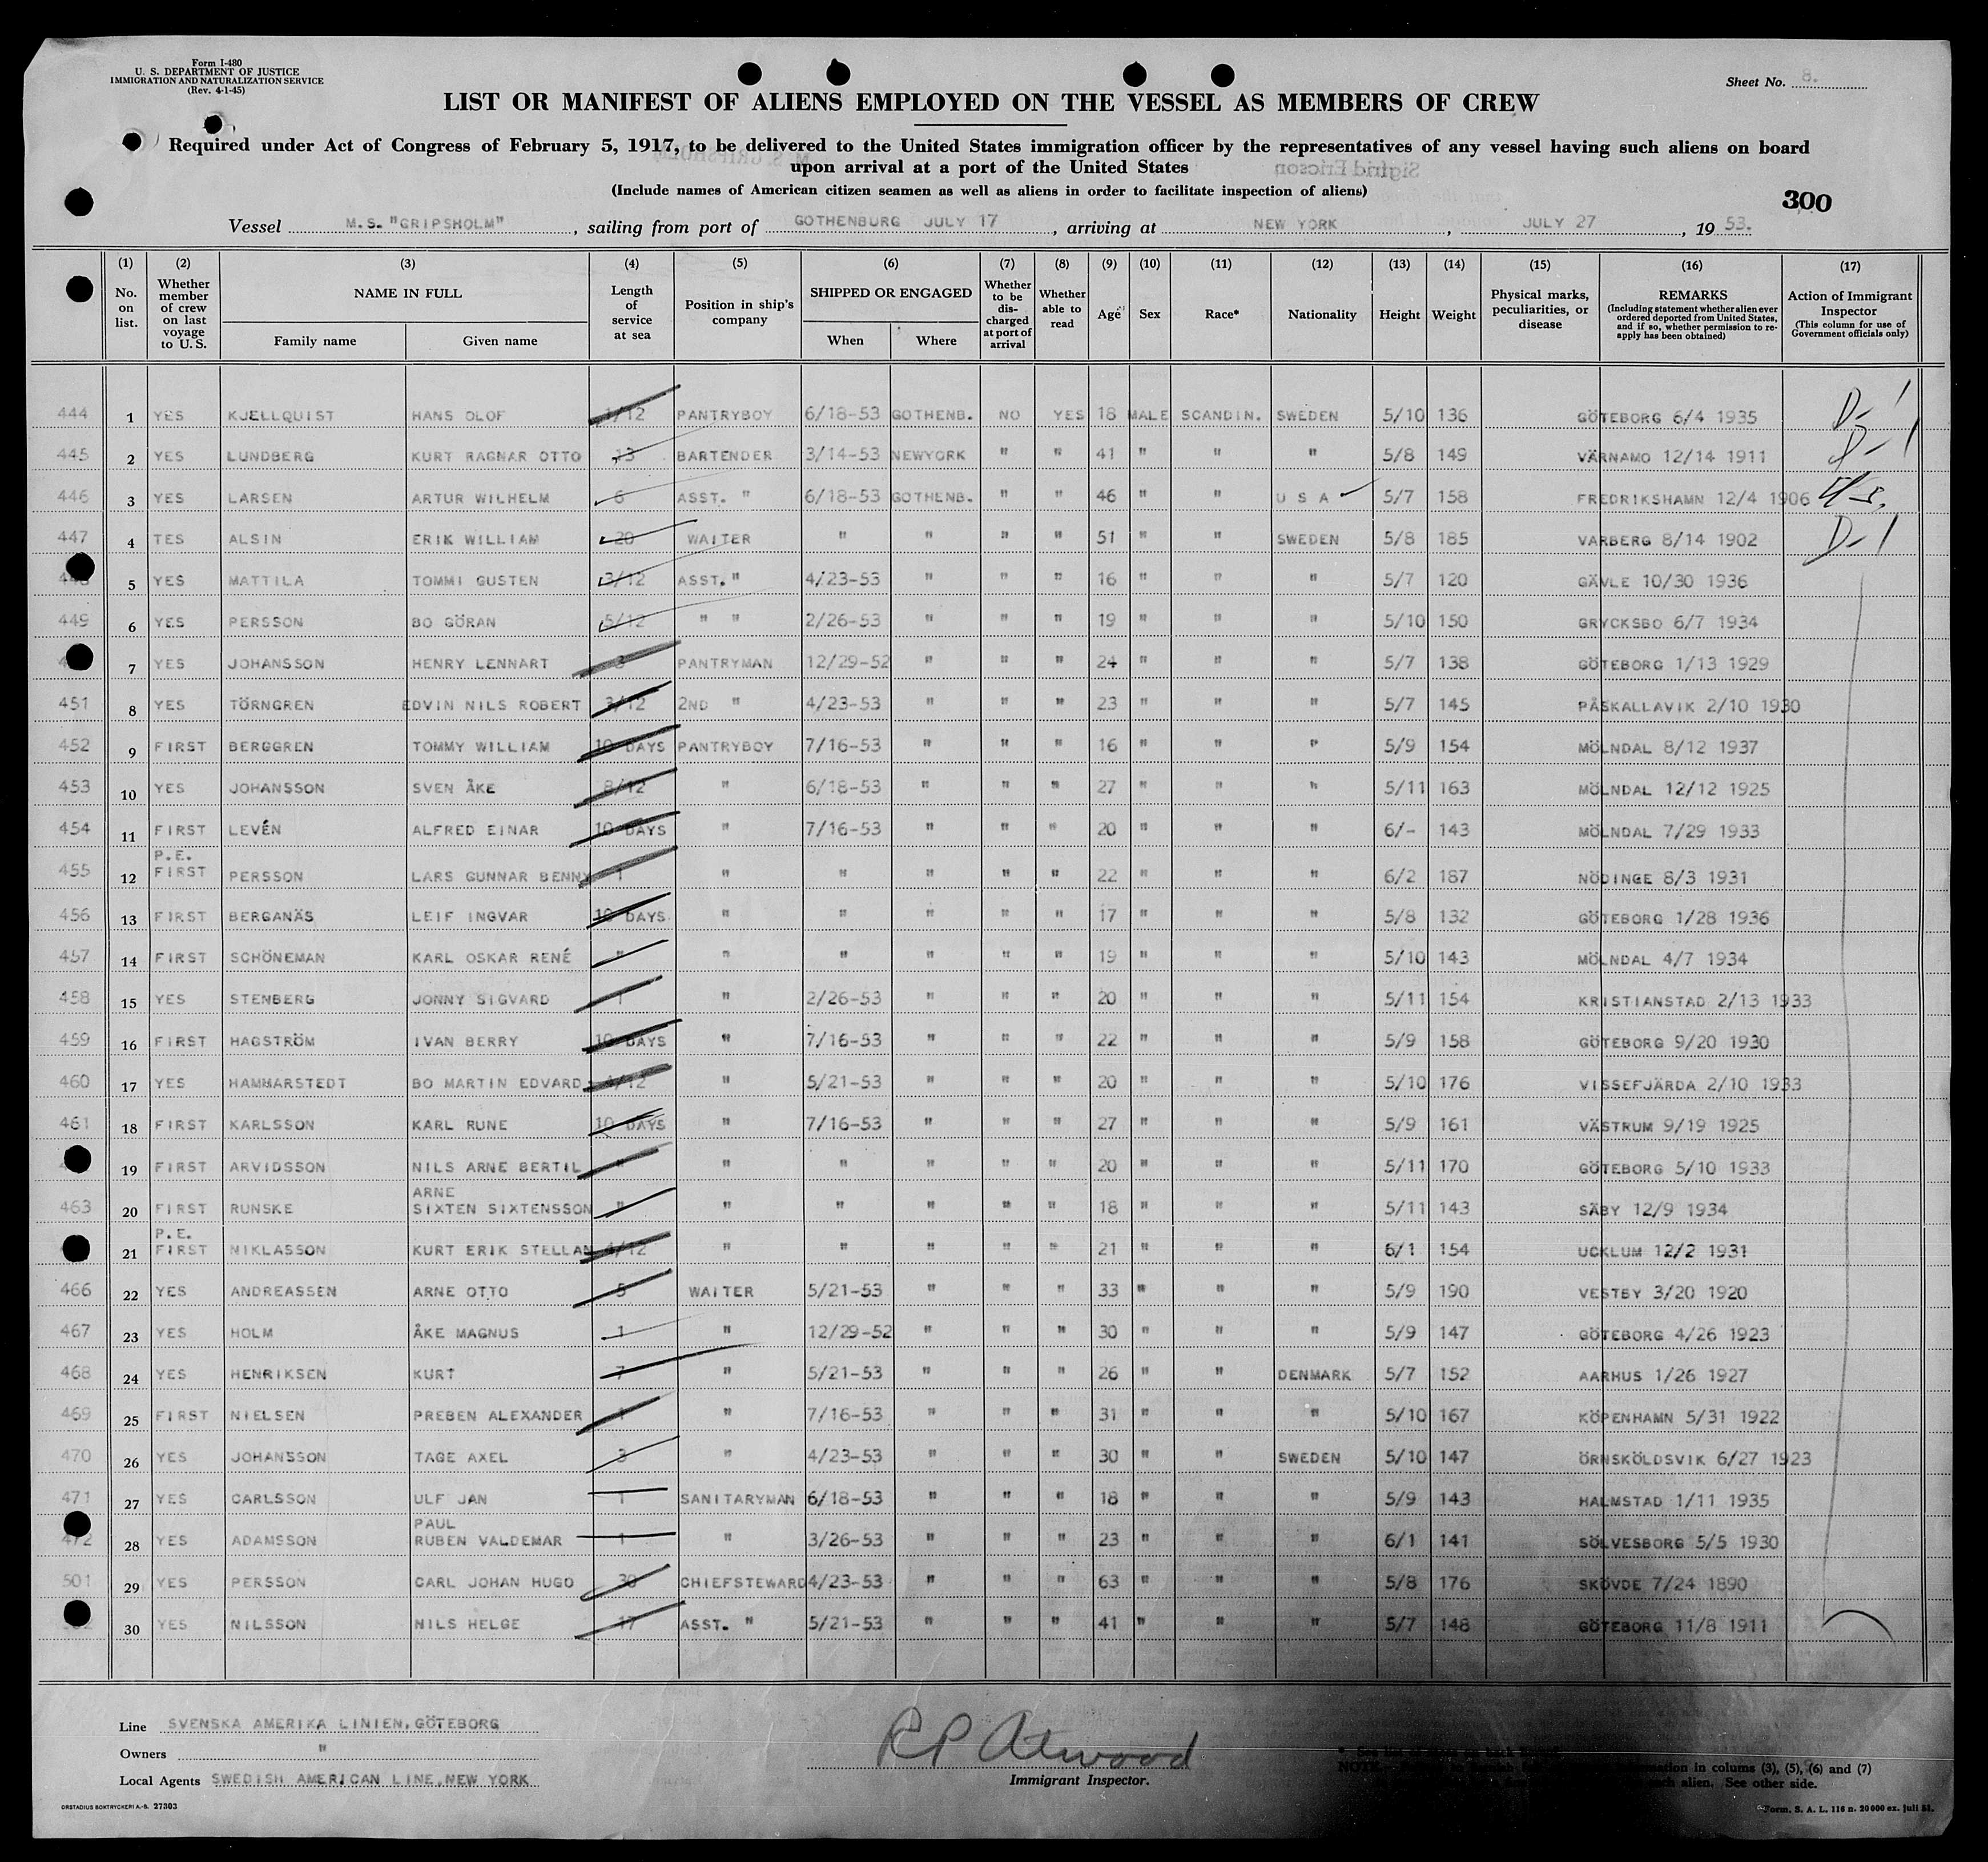 Form I-480
U. S. DEPARTMENT OF JUSTICE
IMMIGRATION AND NATURALIZATION SERVICE
(Rev. 4-1-45)
Sheet No. 8.
LIST OR MANIFEST OF ALIENS EMPLOYED ON THE VESSEL AS MEMBERS OF CREW
Required under Act of Congress of February 5, 1917, to be delivered to the United States immigration officer by the representatives of any vessel having such aliens on board
upon arrival at a port of the United States
Sigfrid Ericson
(Include names of American citizen seamen as well as aliens in order to facilitate inspection of aliens)
300
Vessel M.S. "GRIPSHOLM", sailing from port of GOTHENBURG JULY 17, arriving at NEW YORK, JULY 27, 19 53.
(1) (2) (3) (4) (5) (6) (7) (8) (9) (10) (11) (12) (13) (14) (15) (16) (17)
No. on list. Whether member of crew on last voyage to U. S. NAME IN FULL Family name Given name Length of service at sea Position in ship's company SHIPPED OR ENGAGED When Where Whether to be discharged at port of arrival Whether able to read Age Sex Race* Nationality Height Weight Physical marks, peculiarities, or disease REMARKS (Including statement whether alien ever ordered deported from United States, and if so, whether permission to reapply has been obtained) Action of Immigrant Inspector (This column for use of Government officials only)
444 1 YES KJELLQUIST HANS OLOF 1/12 PANTRYBOY 6/18-53 GOTHENB. NO YES 18 MALE SCANDIN. SWEDEN 5/10 136 GÖTEBORG 6/4 1935 D-1
445 2 YES LUNDBERG KURT RAGNAR OTTO 13 BARTENDER 3/14-53 NEWYORK " " 41 " " " 5/8 149 VÄRNAMO 12/14 1911 D-1
446 3 YES LARSEN ARTUR WILHELM 6 ASST. " 6/18-53 GOTHENB. " " 46 " " U S A 5/7 158 FREDRIKSHAMN 12/4 1906
447 4 TES ALSIN ERIK WILLIAM 20 WAITER " " " " 51 " " SWEDEN 5/8 185 VARBERG 8/14 1902 D-1
5 YES MATTILA TOMMI GUSTEN 3/12 ASST. " 4/23-53 " " " 16 " " " 5/7 120 GÄVLE 10/30 1936
449 6 YES PERSSON BO GÖRAN 5/12 " " 2/26-53 " " " 19 " " " 5/10 150 GRYCKSBO 6/7 1934
7 YES JOHANSSON HENRY LENNART 3 PANTRYMAN 12/29-52 " " " 24 " " " 5/7 138 GÖTEBORG 1/13 1929
451 8 YES TÖRNGREN EDVIN NILS ROBERT 3/12 2ND " 4/23-53 " " " 23 " " " 5/7 145 PÅSKALLAVIK 2/10 1930
452 9 FIRST BERGGREN TOMMY WILLIAM 10 DAYS PANTRYBOY 7/16-53 " " " 16 " " " 5/9 154 MÖLNDAL 8/12 1937
453 10 YES JOHANSSON SVEN ÅKE 8/12 " 6/18-53 " " " 27 " " " 5/11 163 MÖLNDAL 12/12 1925
454 11 FIRST LEVÉN ALFRED EINAR 10 DAYS " 7/16-53 " " " 20 " " " 6/- 143 MÖLNDAL 7/29 1933
P.E.
455 12 FIRST PERSSON LARS GUNNAR BENNY 1 " " " " " 22 " " " 6/2 187 NÖDINGE 8/3 1931
456 13 FIRST BERGANÄS LEIF INGVAR 10 DAYS " " " " " 17 " " " 5/8 132 GÖTEBORG 1/28 1936
457 14 FIRST SCHÖNEMAN KARL OSKAR RENÉ " " " " " " 19 " " " 5/10 143 MÖLNDAL 4/7 1934
458 15 YES STENBERG JONNY SIGVARD 1 " 2/26-53 " " " 20 " " " 5/11 154 KRISTIANSTAD 2/13 1933
459 16 FIRST HAGSTRÖM IVAN BERRY 10 DAYS " 7/16-53 " " " 22 " " " 5/9 158 GÖTEBORG 9/20 1930
460 17 YES HAMMARSTEDT BO MARTIN EDVARD 4/12 " 5/21-53 " " " 20 " " " 5/10 176 VISSEFJÄRDA 2/10 1933
461 18 FIRST KARLSSON KARL RUNE 10 DAYS " 7/16-53 " " " 27 " " " 5/9 161 VÄSTRUM 9/19 1925
19 FIRST ARVIDSSON NILS ARNE BERTIL " " " " " " 20 " " " 5/11 170 GÖTEBORG 5/10 1933
ARNE
463 20 FIRST RUNSKE SIXTEN SIXTENSSON " " " " " " 18 " " " 5/11 143 SÄBY 12/9 1934
P.E.
21 FIRST NIKLASSON KURT ERIK STELLAN 4/12 " " " " " 21 " " " 6/1 154 UCKLUM 12/2 1931
466 22 YES ANDREASSEN ARNE OTTO 5 WAITER 5/21-53 " " " 33 " " " 5/9 190 VESTBY 3/20 1920
467 23 YES HOLM ÅKE MAGNUS 1 " 12/29-52 " " " 30 " " " 5/9 147 GÖTEBORG 4/26 1923
468 24 YES HENRIKSEN KURT 7 " 5/21-53 " " " 26 " " DENMARK 5/7 152 AARHUS 1/26 1927
469 25 FIRST NIELSEN PREBEN ALEXANDER 1 " 7/16-53 " " " 31 " " " 5/10 167 KÖPENHAMN 5/31 1922
470 26 YES JOHANSSON TAGE AXEL 3 " 4/23-53 " " " 30 " " SWEDEN 5/10 147 ÖRNSKÖLDSVIK 6/27 1923
471 27 YES CARLSSON ULF JAN 1 SANITARYMAN 6/18-53 " " " 18 " " " 5/9 143 HALMSTAD 1/11 1935
PAUL
472 28 YES ADAMSSON RUBEN VALDEMAR 1 " 3/26-53 " " " 23 " " " 6/1 141 SÖLVESBORG 5/5 1930
501 29 YES PERSSON CARL JOHAN HUGO 30 CHIEFSTEWARD 4/23-53 " " " 63 " " " 5/8 176 SKÖVDE 7/24 1890
30 YES NILSSON NILS HELGE 17 ASST. " 5/21-53 " " " 41 " " " 5/7 148 GÖTEBORG 11/8 1911
Line SVENSKA AMERIKA LINIEN, GÖTEBORG
Owners "
Local Agents SWEDISH AMERICAN LINE, NEW YORK
ORSTADIUS BOKTRYCKERI A.-B. 27303
R P Atwood
Immigrant Inspector.
NOTE information in colums (3), (5), (6) and (7)
such alien. See other side.
Form. S. A. L. 116 n. 20000 ex. juli 51.